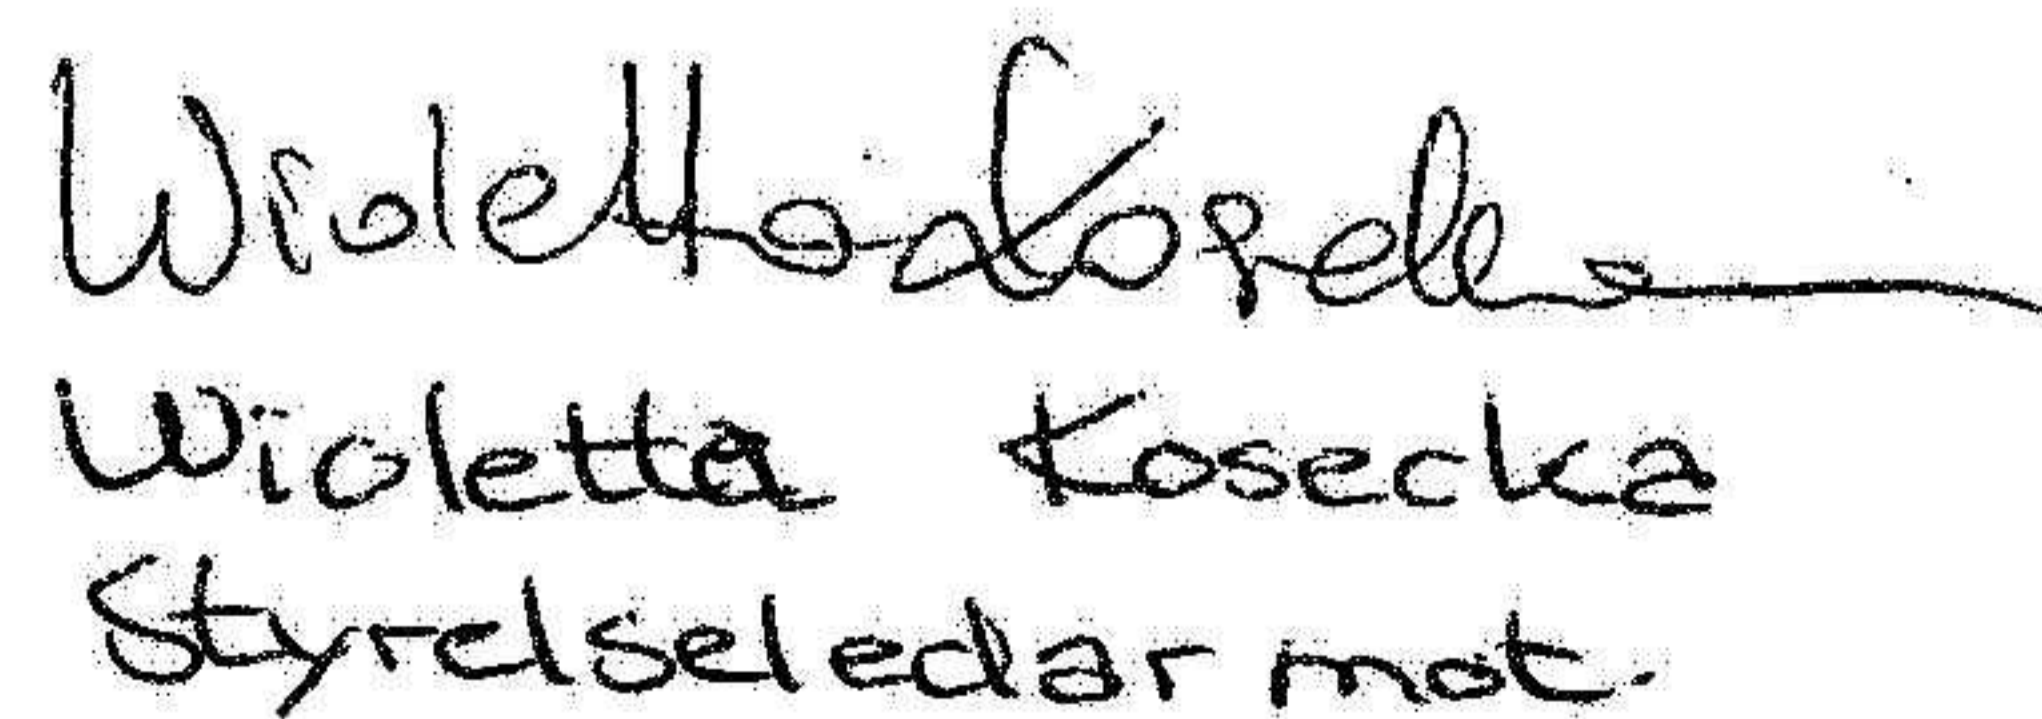 Wioletta Kosecka
Wioletta Kosecka
Styrelseledar mot.